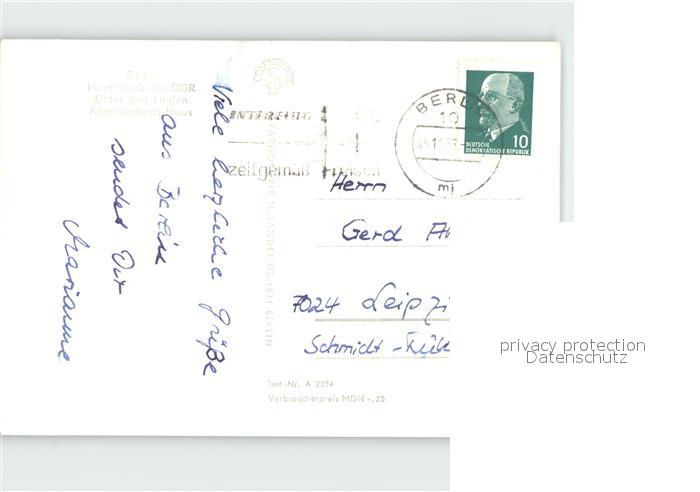 Berlin
Hauptstadt der DDR
Unter den Linden
Appartements-Haus
Viele herzliche Grüße
aus Berlin
sendet Dir
Marianne
INTERFLUG
zeitgemäß reisen
BERLIN
10
mj
DEUTSCHE
DEMOKRATISCHE REPUBLIK
10
Herrn
Gerd
7024 Leipzi
Schmidt-
1071 BERLIN
Best.-Nr. A 2384
Verbraucherpreis MDN -,25
privacy protection
Datenschutz